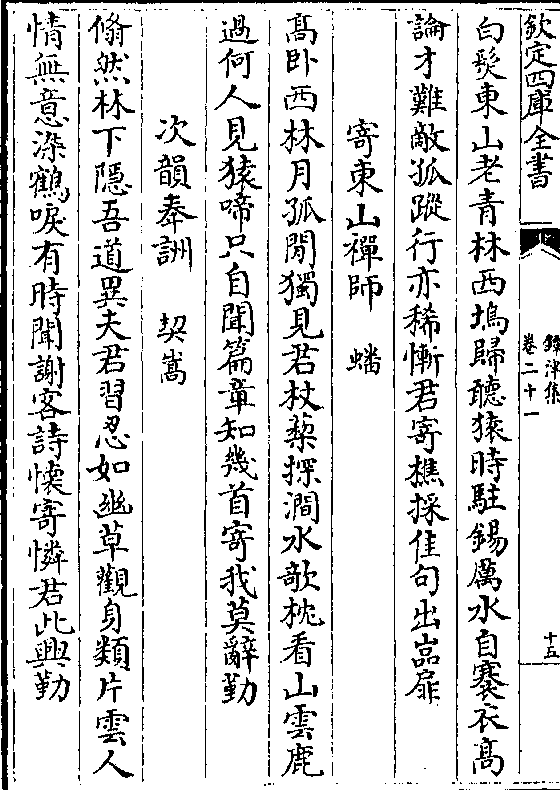 欽定四庫全書
鐔津集
卷二十一
十五
白髮東山老青林西塢歸聽猿時駐錫厲水自褰衣高
論才難敵孤蹤行亦稀慚君寄樵採佳句出嵓扉
寄東山禪師　蟠
高卧西林月孤閒獨見君杖藜探澗水欹枕看山雲鹿
過何人見猿啼只自聞篇章知幾首寄我莫辭勤
次韻奉詶　契嵩
翛然林下隱吾道異夫君習忍如幽草觀身類片雲人
情無意染鶴唳有時聞謝客詩懐寄憐君此興勤